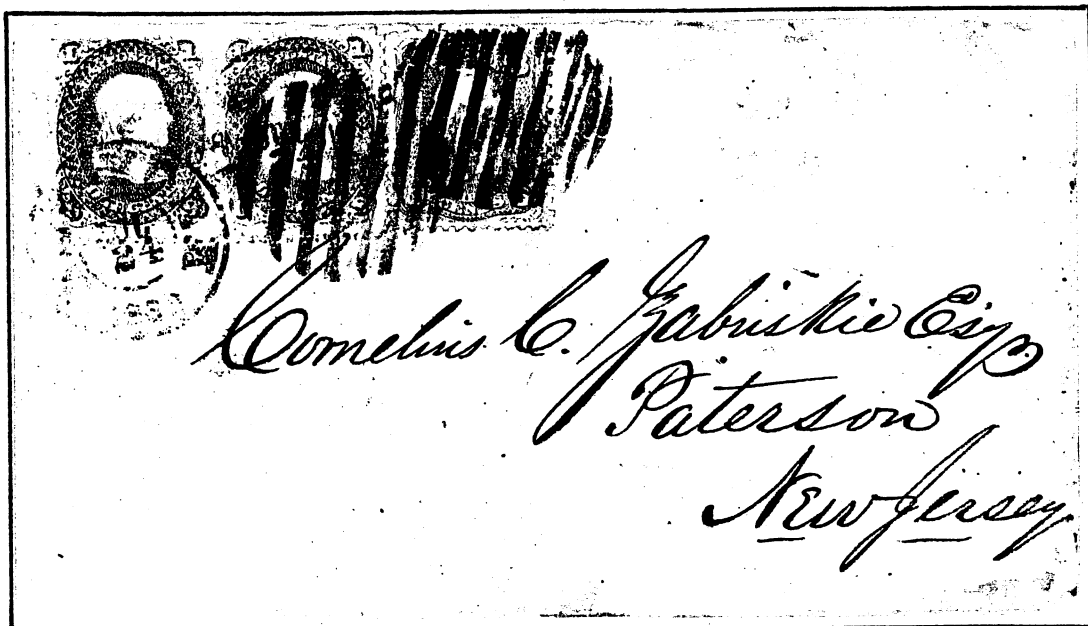 Cornelius C. Zabriskie Esq.
Paterson
New Jersey.